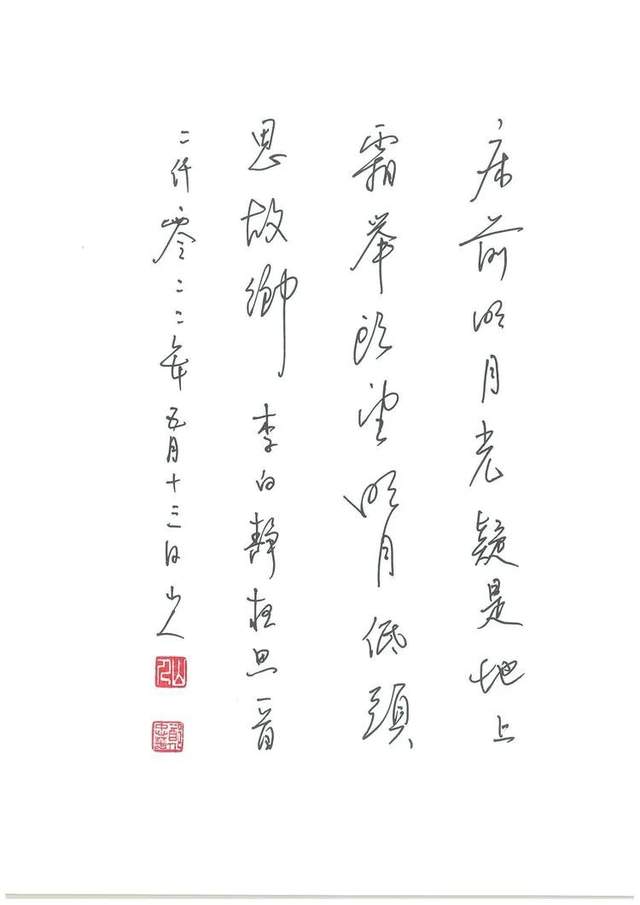 床前明月光疑是地上
霜舉頭望明月低頭
思故鄉 李白靜夜思一首
二仟零二二年五月十三日山人
山人